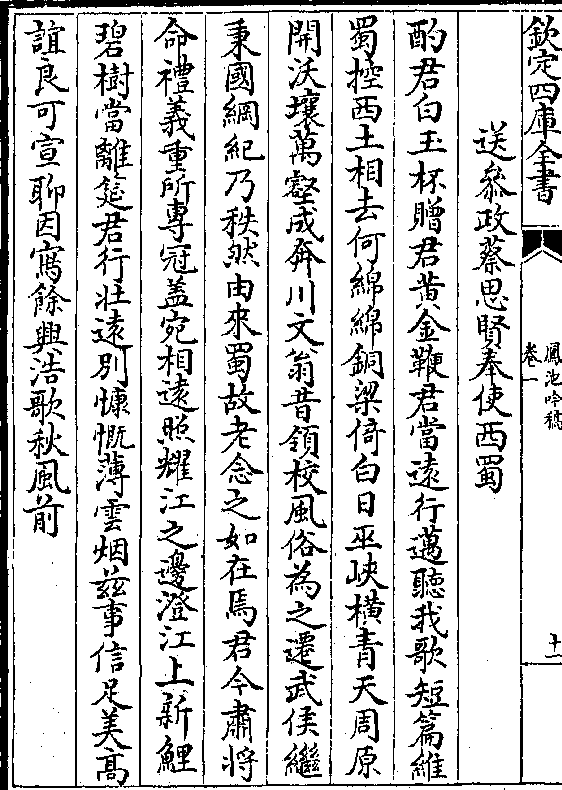 欽定四庫全書
鳳池吟稿
卷一
十一
送叅政蔡思賢奉使西蜀
酌君白玉杯贈君黄金鞭君當逺行邁聽我歌短篇維
蜀控西土相去何綿綿銅梁倚白日巫峽横青天周原
開沃壤萬壑成奔川文翁昔領校風俗為之遷武侯繼
秉國綱紀乃秩然由來蜀故老念之如在焉君今肅將
命禮義重所專冠盖宛相逺照耀江之邊澄江上新鯉
碧樹當離筵君行壯逺别慷慨薄雲烟兹事信足美髙
誼良可宣聊因寫餘興浩歌秋風前